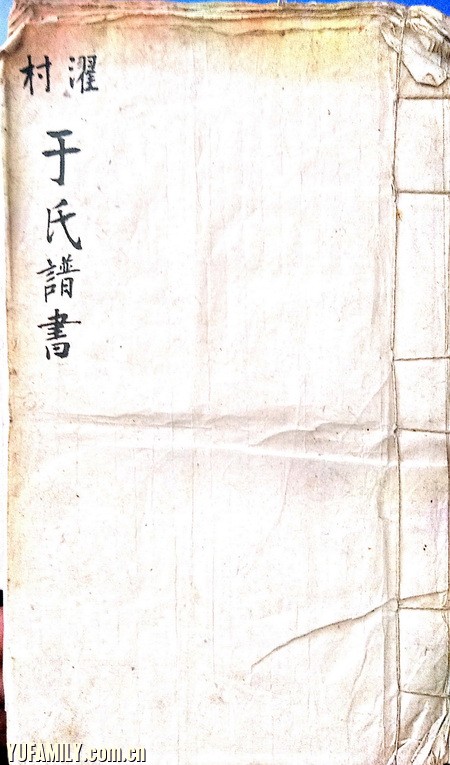 濯村
于氏譜書
YUFAMILY.com.cn